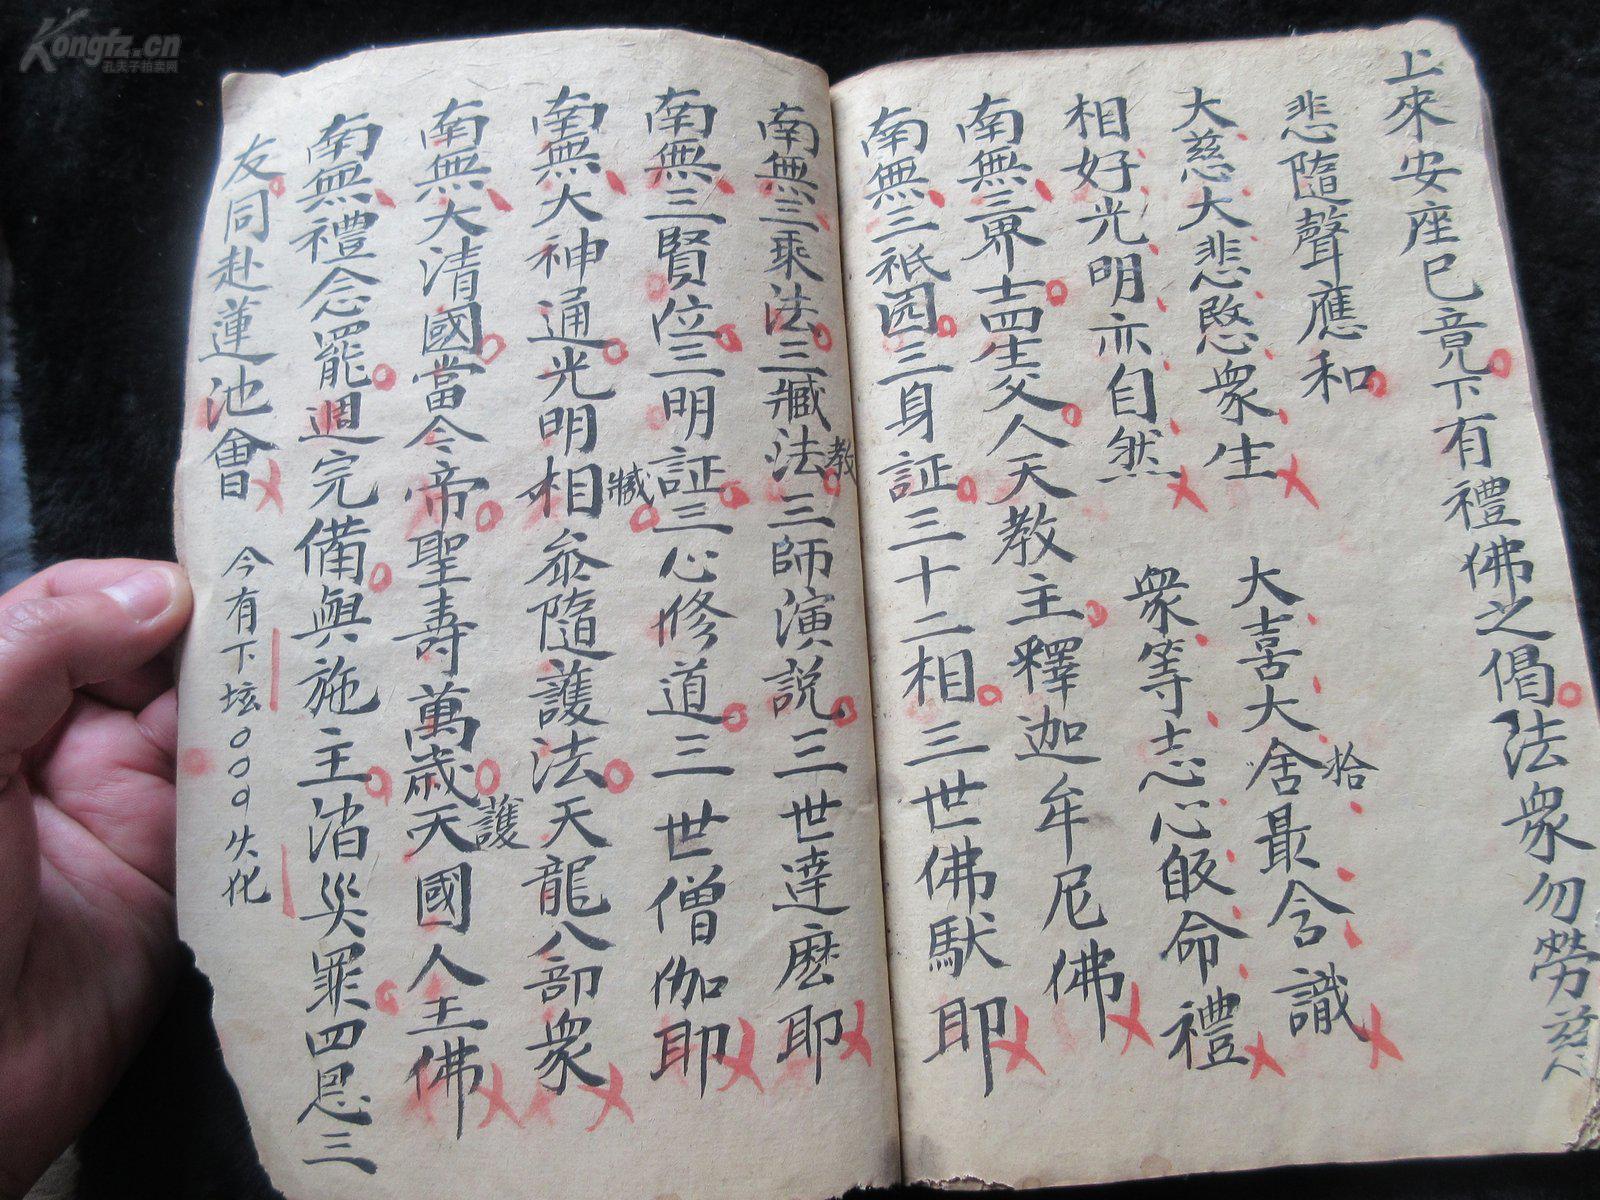 Kongfz.cn
孔夫子拍卖网
上來安座已竟下有禮佛之偈法衆勿勞慈
悲隨聲應和
大慈大悲愍衆生
大喜大舍最含識
拾
相好光明亦自然
衆等志心皈命禮
南無三界十四生父人天教主釋迦牟尼佛
南無三祇园三身証三十二相三世佛馱耶
南無三乘法三臧法三師演説三世達麽耶
教
南無三賢位三明証三心修道三世僧伽耶
南無大神通光明相叅隨護法天龍八部衆
臧
南無大清國當今帝聖壽萬歲天國人王佛
護
南無禮念罷週完備與施主消災罪四恩三
友同赴蓮池會
今有下坛000火化